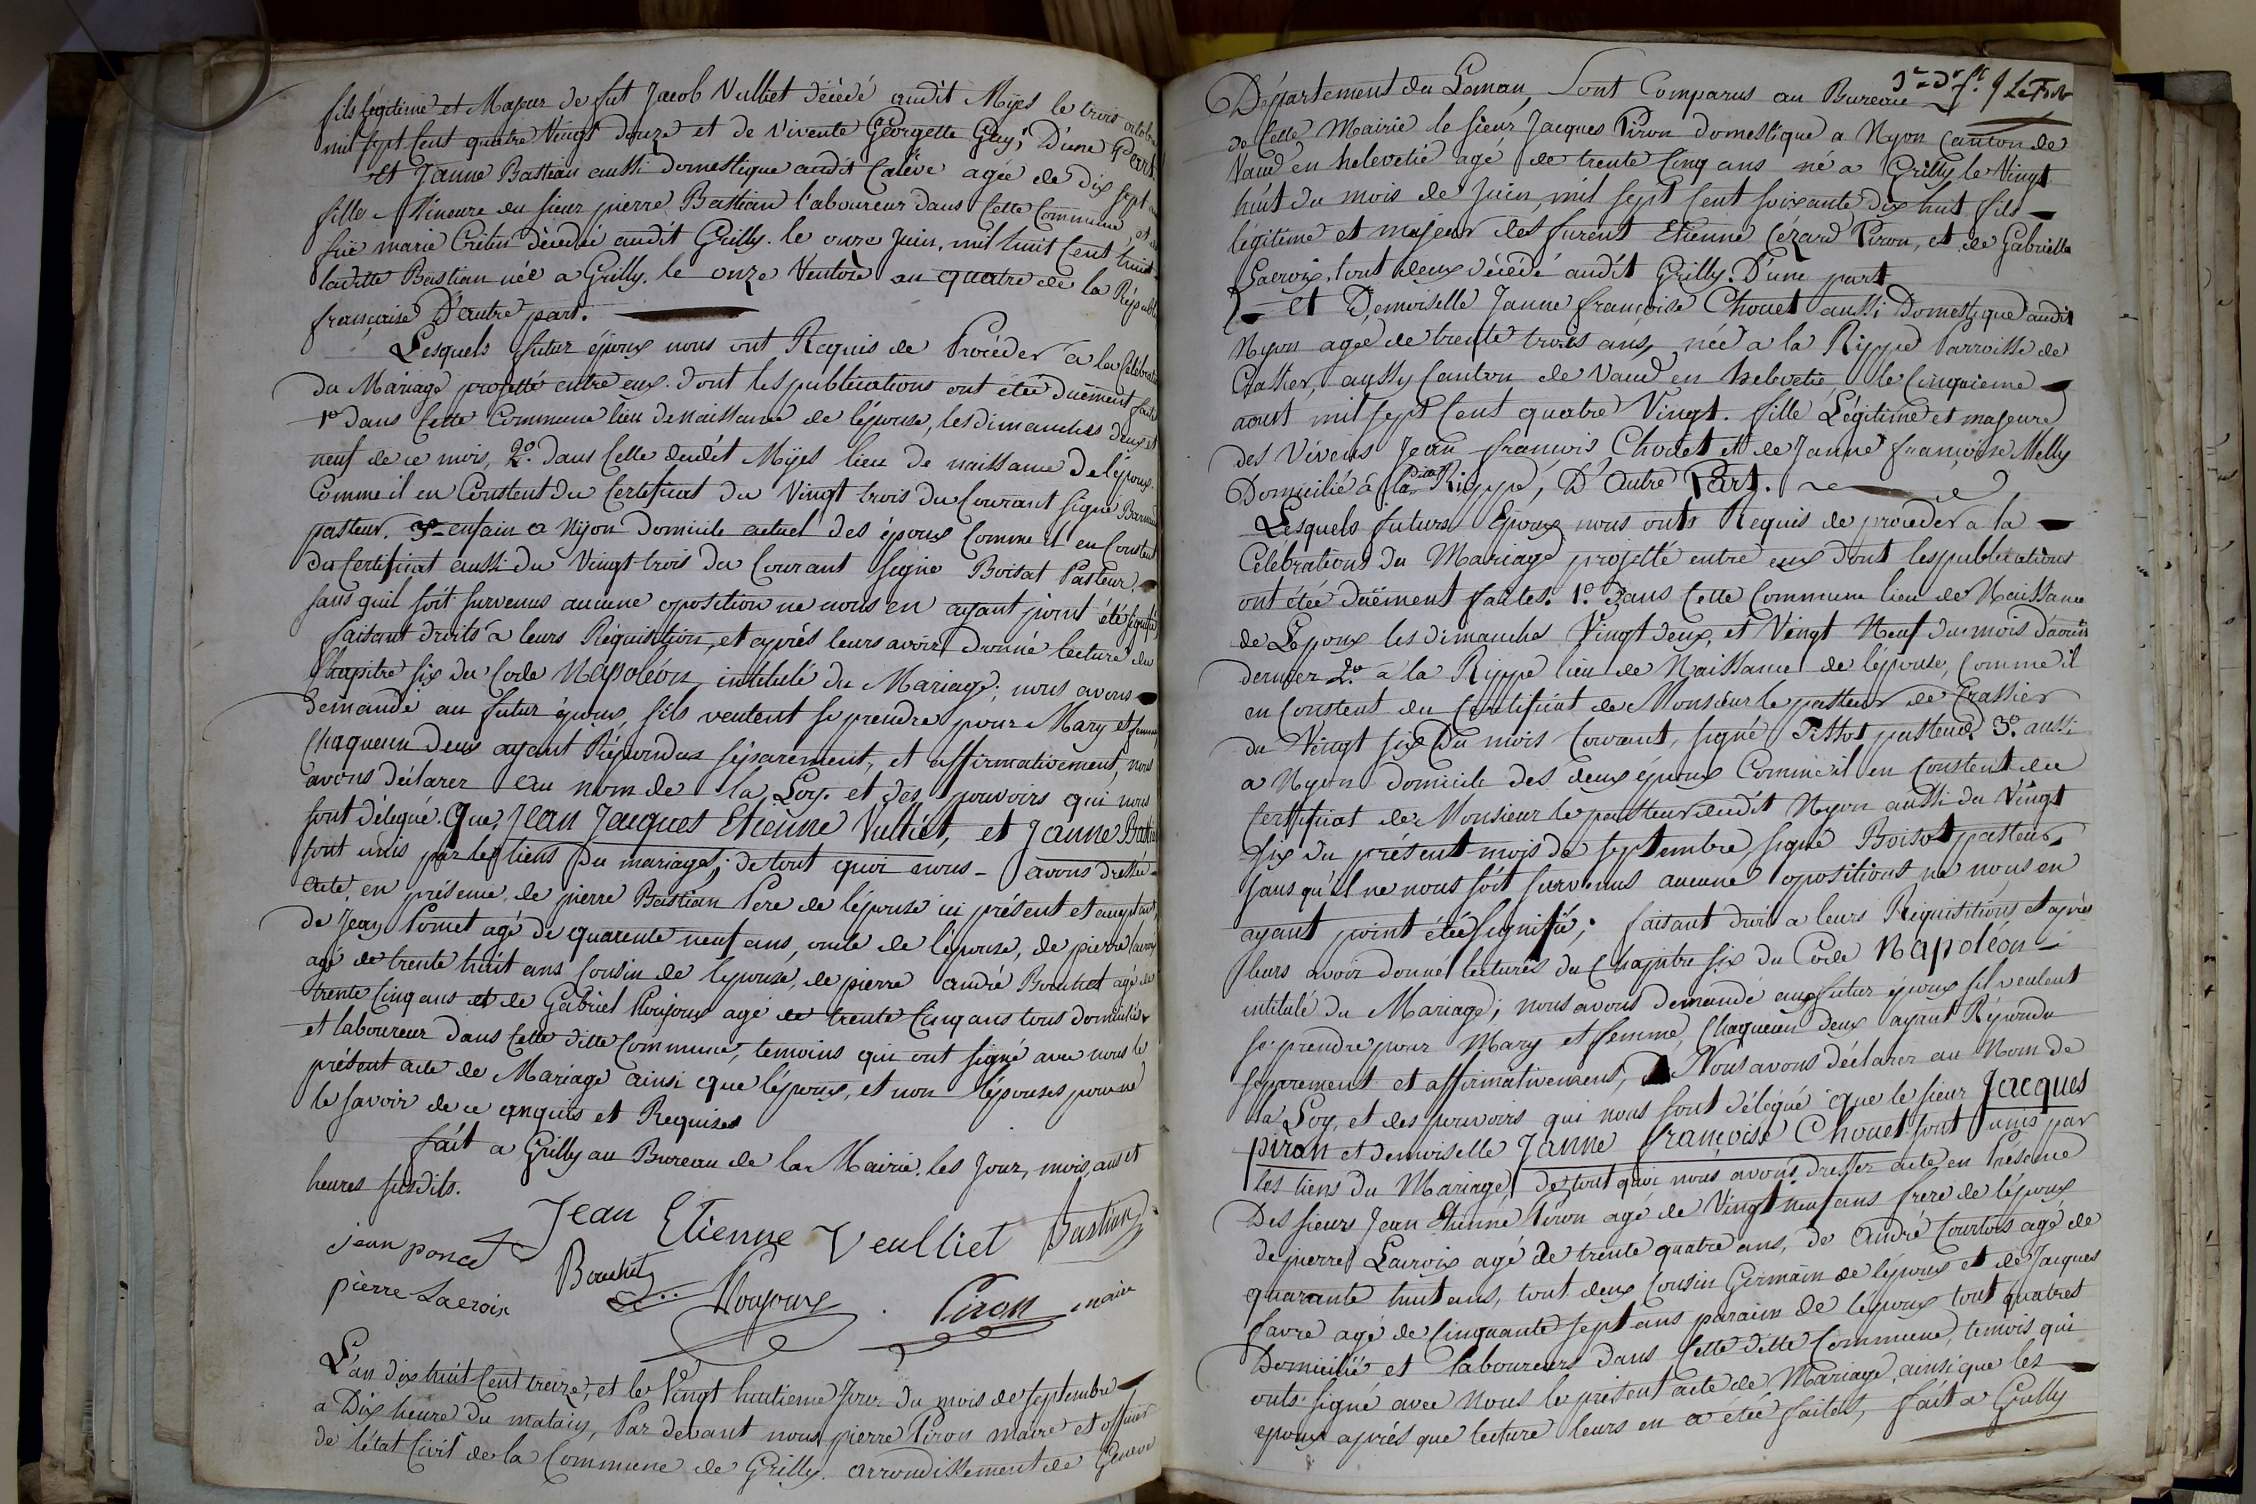 fils légitime et Majeur de fut Jacob Vulliet décédé audit Mijes le trois octobre
mil sept Cent quatre Vingt douze et de vivente Géorgette Guy, D'une Part.
et Janne Bastian aussi domestique audit Calève agée de dix sept
fille Mineure du sieur pierre Bastian l'aboureur dans Cette Commune, et de
fuë marie Crétin décédée audit Grilly. le onze Juin, mil huit Cent huit
laditte Bastian née a Grilly. le onze Ventôse an quatre de la Républ
française D'autre part.
Lesquels futur époux nous ont Requis de Procéder a la Célébration
du Mariage projetté entre eux. dont les publications ont étée duëment faite
1º dans Cette Commune lieu de naissance de l'épouse, les dimanches deux et
neuf de ce mois, 2º. dans Celle dudit Mijes lieu de naissance de l'époux.
Comme il en Constent du Certificat du Vingt trois du Courant signé
pasteur. 3º enfain a Nijon domicile actuel des époux Comme il en Constent
du Certificat aussi du Vingt-trois du Courant signé Boisot Pasteur.
sans quil soit survenus aucune oposition ne nous en ayant point été signifié
faisant droits a leurs Réquisition, et après leurs avoir donné lecture du
Chapitre six du Code Napoléon, intitulé du Mariage; nous avons
demandé au futur époux, sils veulent se prendre pour Mary et femme
Chaqueun deux ayant Répondus séparement, et affirmativement, nous
avons déclarer au nom de la Loy. et des pouvoirs qui nous
sont délégué. Que, Jean Jacques Etienne Vulliet, et Janne Bastian
sont unis par les liens du mariage; de tout quoi nous – avons dressé
acte, en présence de pierre Bastian Pere de l'épouse ici présent et
de Jean Poncet agé de quarente neuf ans, oncle de l'épouse, de pierre Lacroix
agé de trente huit ans Cousin de l'epouse, de pierre andré Bouchet agé de
trente Cinq ans et de Gabriel Poujoux agé de trente Cinq ans tous domicilié
et laboureur dans Cette ditte Commune, temoins qui ont signé avec nous le
présent acte de Mariage ainsi que l'époux, et non l'épouses pour ne
le savoir de ce enquis et Requises
fait a Grilly au Bureau de la Mairie. les Jour, mois, ans et
heures susdits.
Jean Etienne Veulliet Bastian
jean poncet
Bouchet
pierre Lacroix Poujoux Piron maire
L'an dix huit Cent treize, et le Vingt huitieme Jour du mois de septembre
a Dix heure du matain, Par devant nous pierre Piron maire et officier
de l'état Civil de la Commune de Grilly. arrondissement de Geneve
Département du Leman, Sont Comparus au Bureau
de Cette Mairie le sieur Jacques Piron domestique a Nyon Canton de
Vaud en helevetié agé de trente Cinq ans né a Grilly le Vingt
huit du mois de Juin, mil sept Cent soixante dix huit fils
légitime et majeur des furent Etienne Cézard Piron, et de Gabriella
Lacroix, tout deux décédé audit Grilly. D'une part
et Demoiselle Janne françoise Chouet aussi domestique audit
Nyon agée de trente trois ans, née a la Rippe Parroisse de
Crassier, aussy Canton de Vaud en helevetie, le Cinquieme
aout mil sept Cent quatre Vingt. fille Légitime et majeure
des Vivens Jean françois Chouet et de Janne françoise Melly
Domicilié a la ditte Rippe, D'autre Part.
Lesquels futurs Epoux nous onts Requis de proceder a la
Célébrations du Mariage projetté entre eux dont les publications
ont étée duëment faites. 1º. dans Cette Commune lieu de Naissance
de L'epoux les dimanches Vingt deux, et Vingt Neuf du mois d'aouts
dernier 2º. a la Rippe lieu de Naissance de l'épouse, Comme il
en Constent du Certificat de Monsieur le pasteur de Crassier
du Vingt six Du mois Courant, signé pasteur. 3º. aussi
a Nyon domicile des deux époux Comme il en Constent du
Certificat de Monsieur le pasteur dudit Nyon aussi du Vingt
six du présent mois de septembre signé Boisot pasteur,
sans qu'il ne nous soit survenus aucune opositions ne nous en
ayant point étée signifié; faisant droit a leurs Réquisitions et après
leurs avoir donné lectures du Chapitre six du Code Napoléon
intitulé du Mariage; nous avons demandé aux futur époux sil veulent
se prendre pour Mary et femme, Chaqueun deux ayant Répondu
séparement et affirmativement, Nous avons déclarer au Nom de
la Loy, et des pouvoirs qui nous sont délégué que le sieur Jacques
piron et demoiselle Janne françoise Chouet sont unis par
les liens du Mariage, de tout quoi nous avons dresser acte, en Présence
Des sieurs Jean Etienne Piron agé de Vingt neuf ans frere de l'époux
de pierre Lacroix agé de trente quatre ans, de André Courtois agé de
quarante huit ans, tout deux Cousin Germain de l'époux et de Jacques
favre agé de Cinquante sept ans parain de l'époux tout quatres
Domicilié et laboureurs dans Cette ditte Commune, temois qui
onts signé avec Nous le présent acte de Mariage, ainsi que les
epoux après que lecture leurs en a étée faites, fait a Grilly